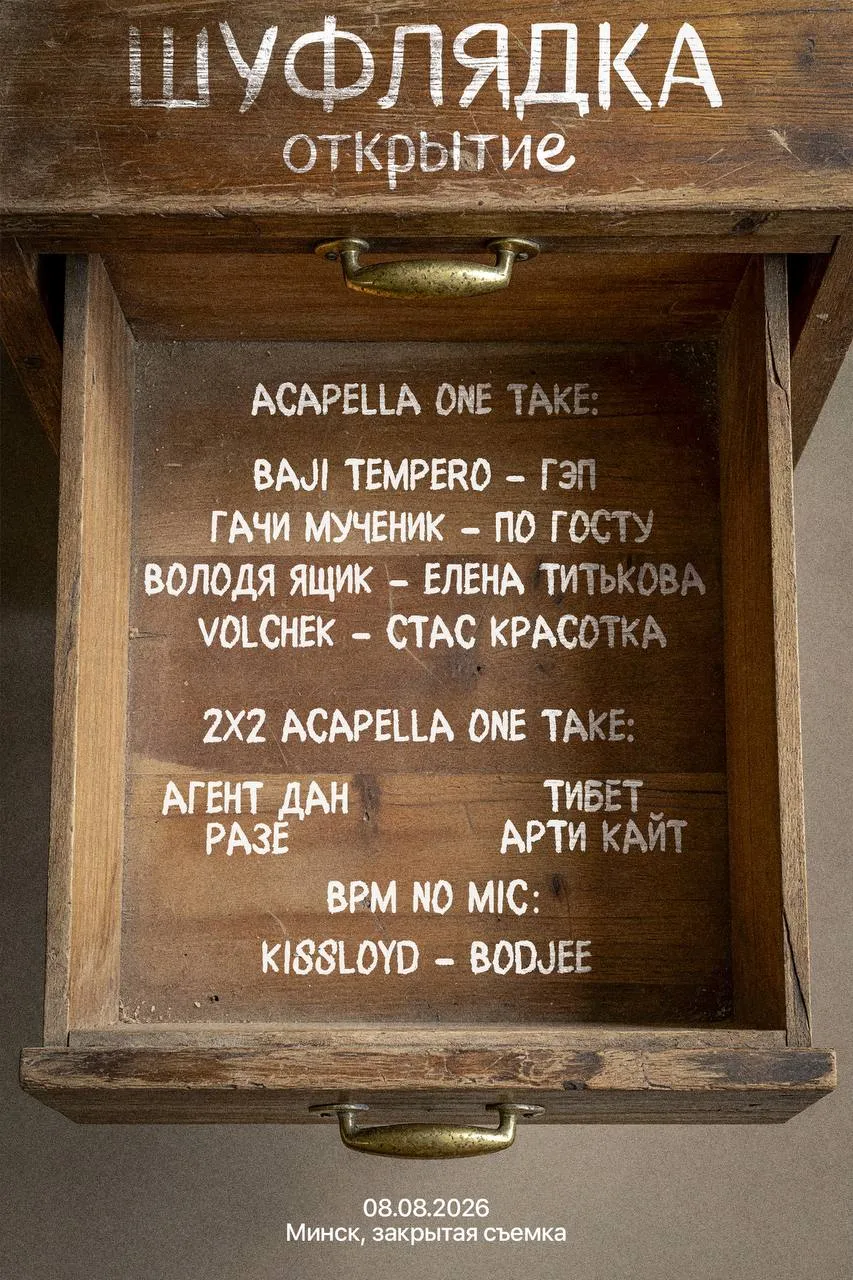 ШУФЛЯДКА
открытие
ACAPELLA ONE TAKE:
BAJI TEMPERO – ГЭП
ГАЧИ МУЧЕНИК – ПО ГОСТУ
ВОЛОДЯ ЯЩИК – ЕЛЕНА ТИТЬКОВА
VOLCHEK – СТАС КРАСОТКА
2X2 ACAPELLA ONE TAKE:
АГЕНТ ДАН ТИБЕТ
РАЗЕ АРТИ КАЙТ
BPM NO MIC:
KISSLOYD – BODJEE
08.08.2026
Минск, закрытая съемка